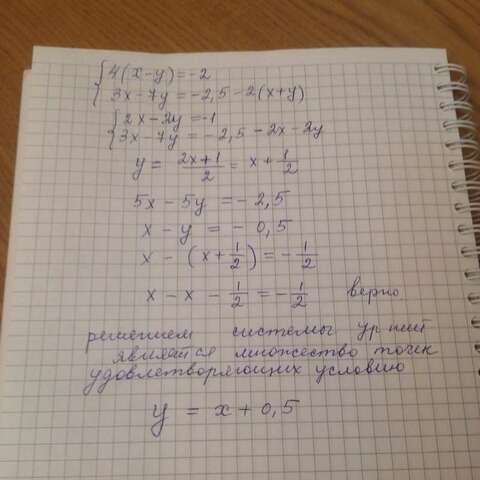 {4(x-y)=-2
3x-7y=-2,5-2(x+y)
{2x-2y=-1
3x-7y=-2,5-2x-2y
y = (2x+1)/2 = x + 1/2
5x-5y = -2,5
x-y = -0,5
x-(x+1/2)=-1/2
x-x-1/2=-1/2 верно
решением системы ур-ний
является множество точек
удовлетворяющих условию
y = x+0,5